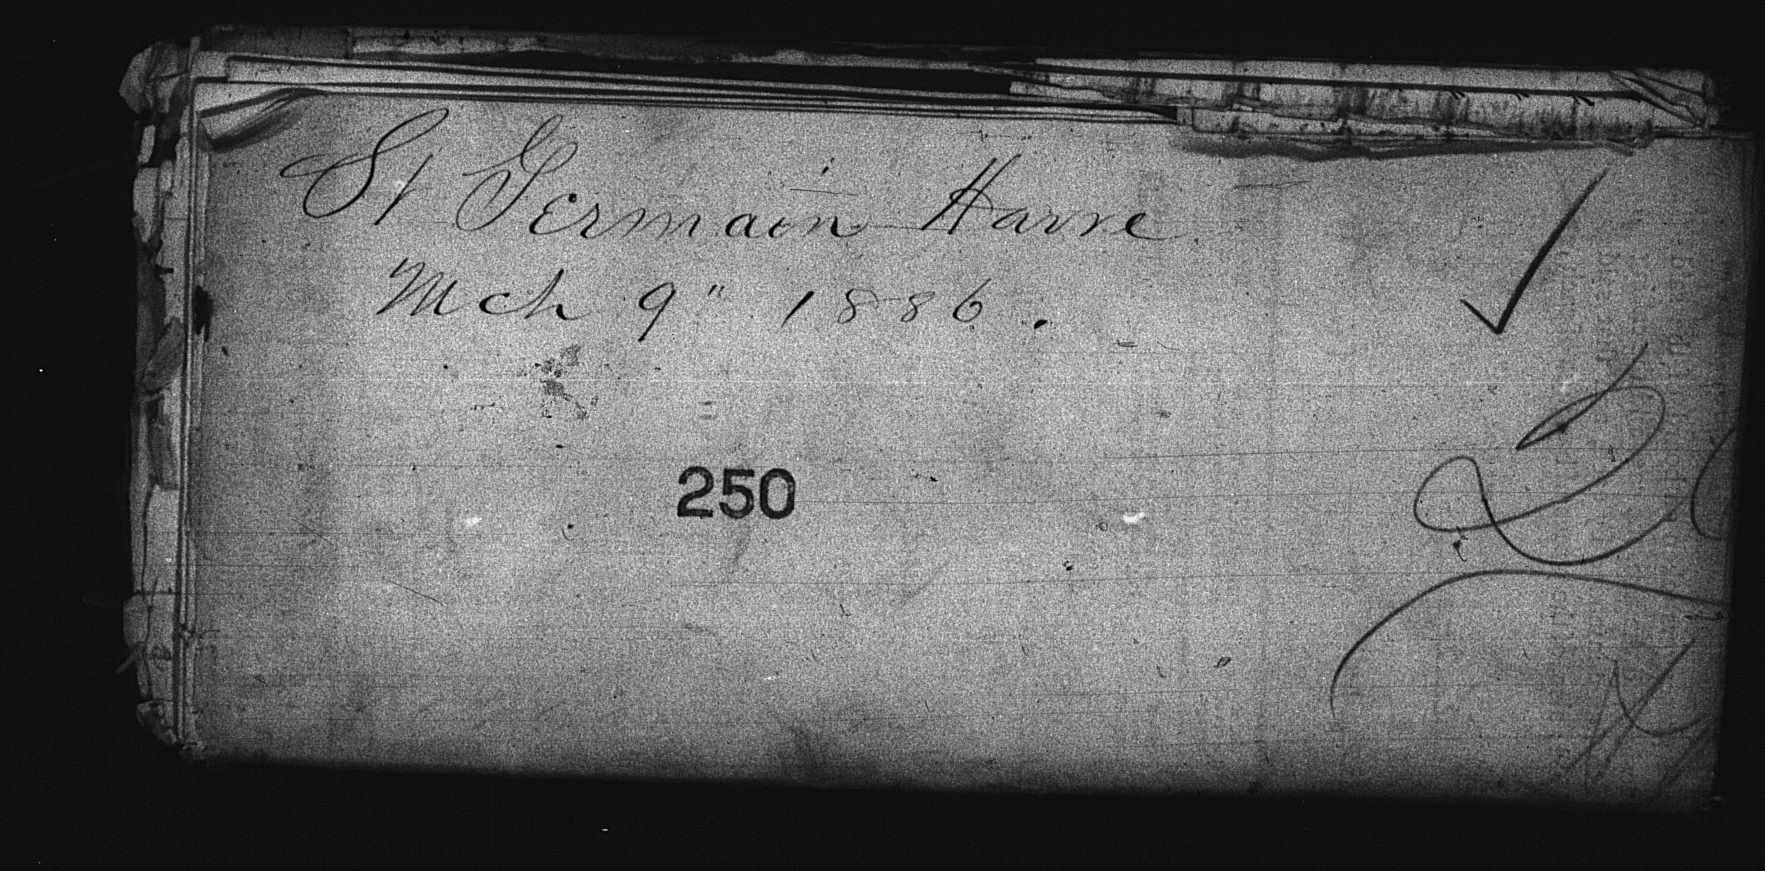 St Germain Havre
Mch 9" 1886.
250